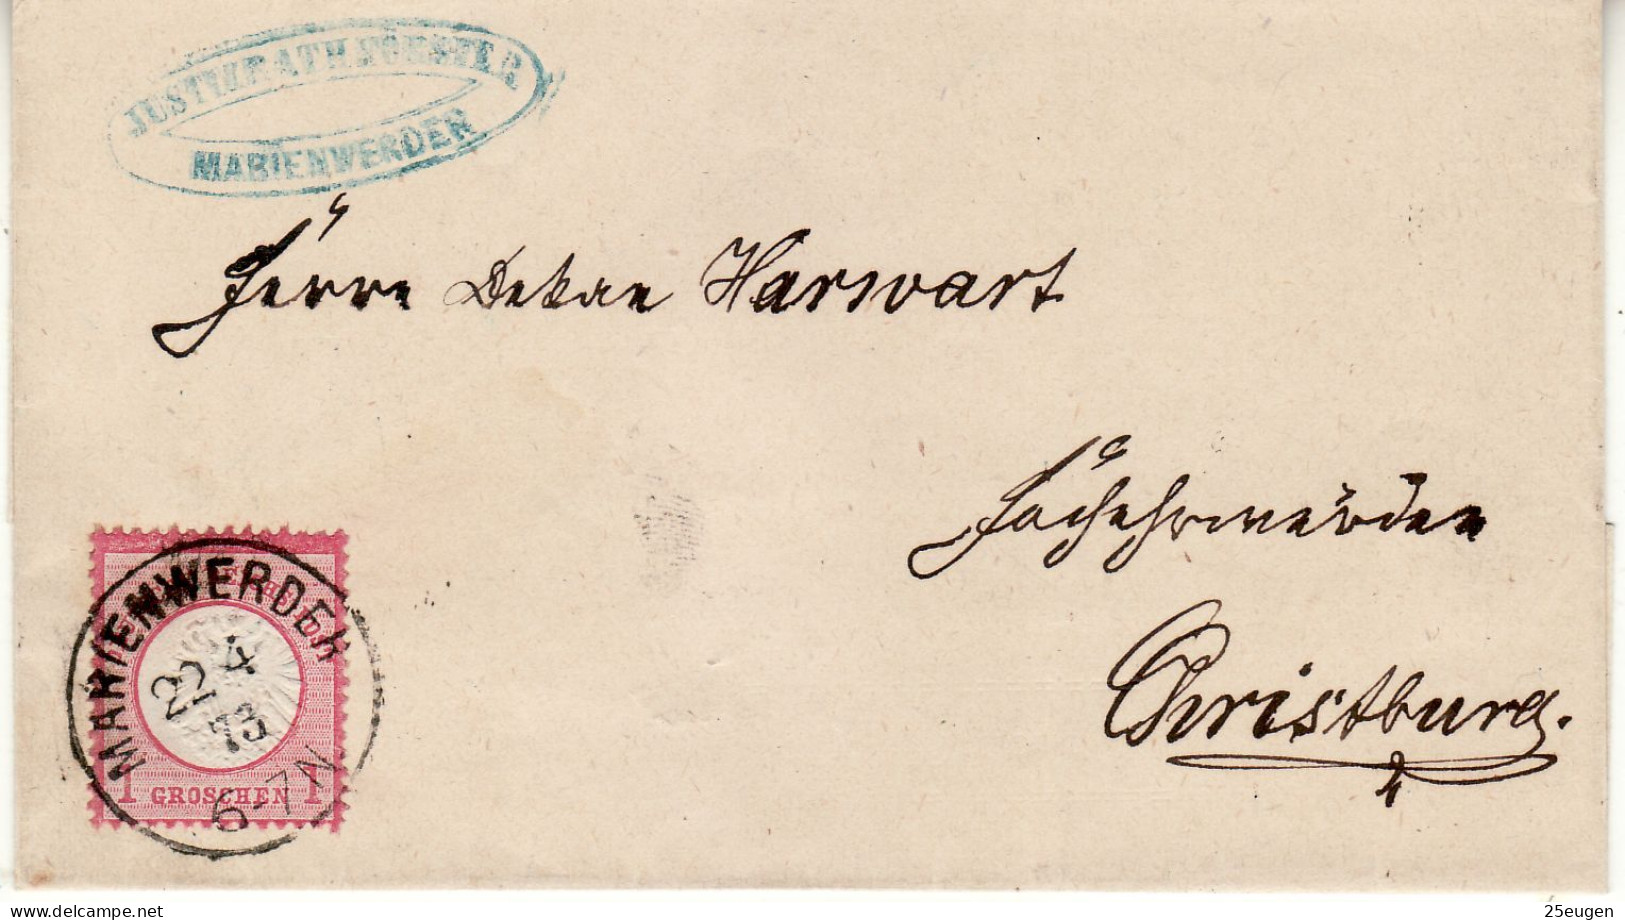 JUSTIZRATH FÖRSTER
MARIENWERDER
Herrn Dekan
Hochehrwürden
Christburg.
MARIENWERDER
22 4
73
6-7N
1 GROSCHEN 1
Delcampe.net
25eugen